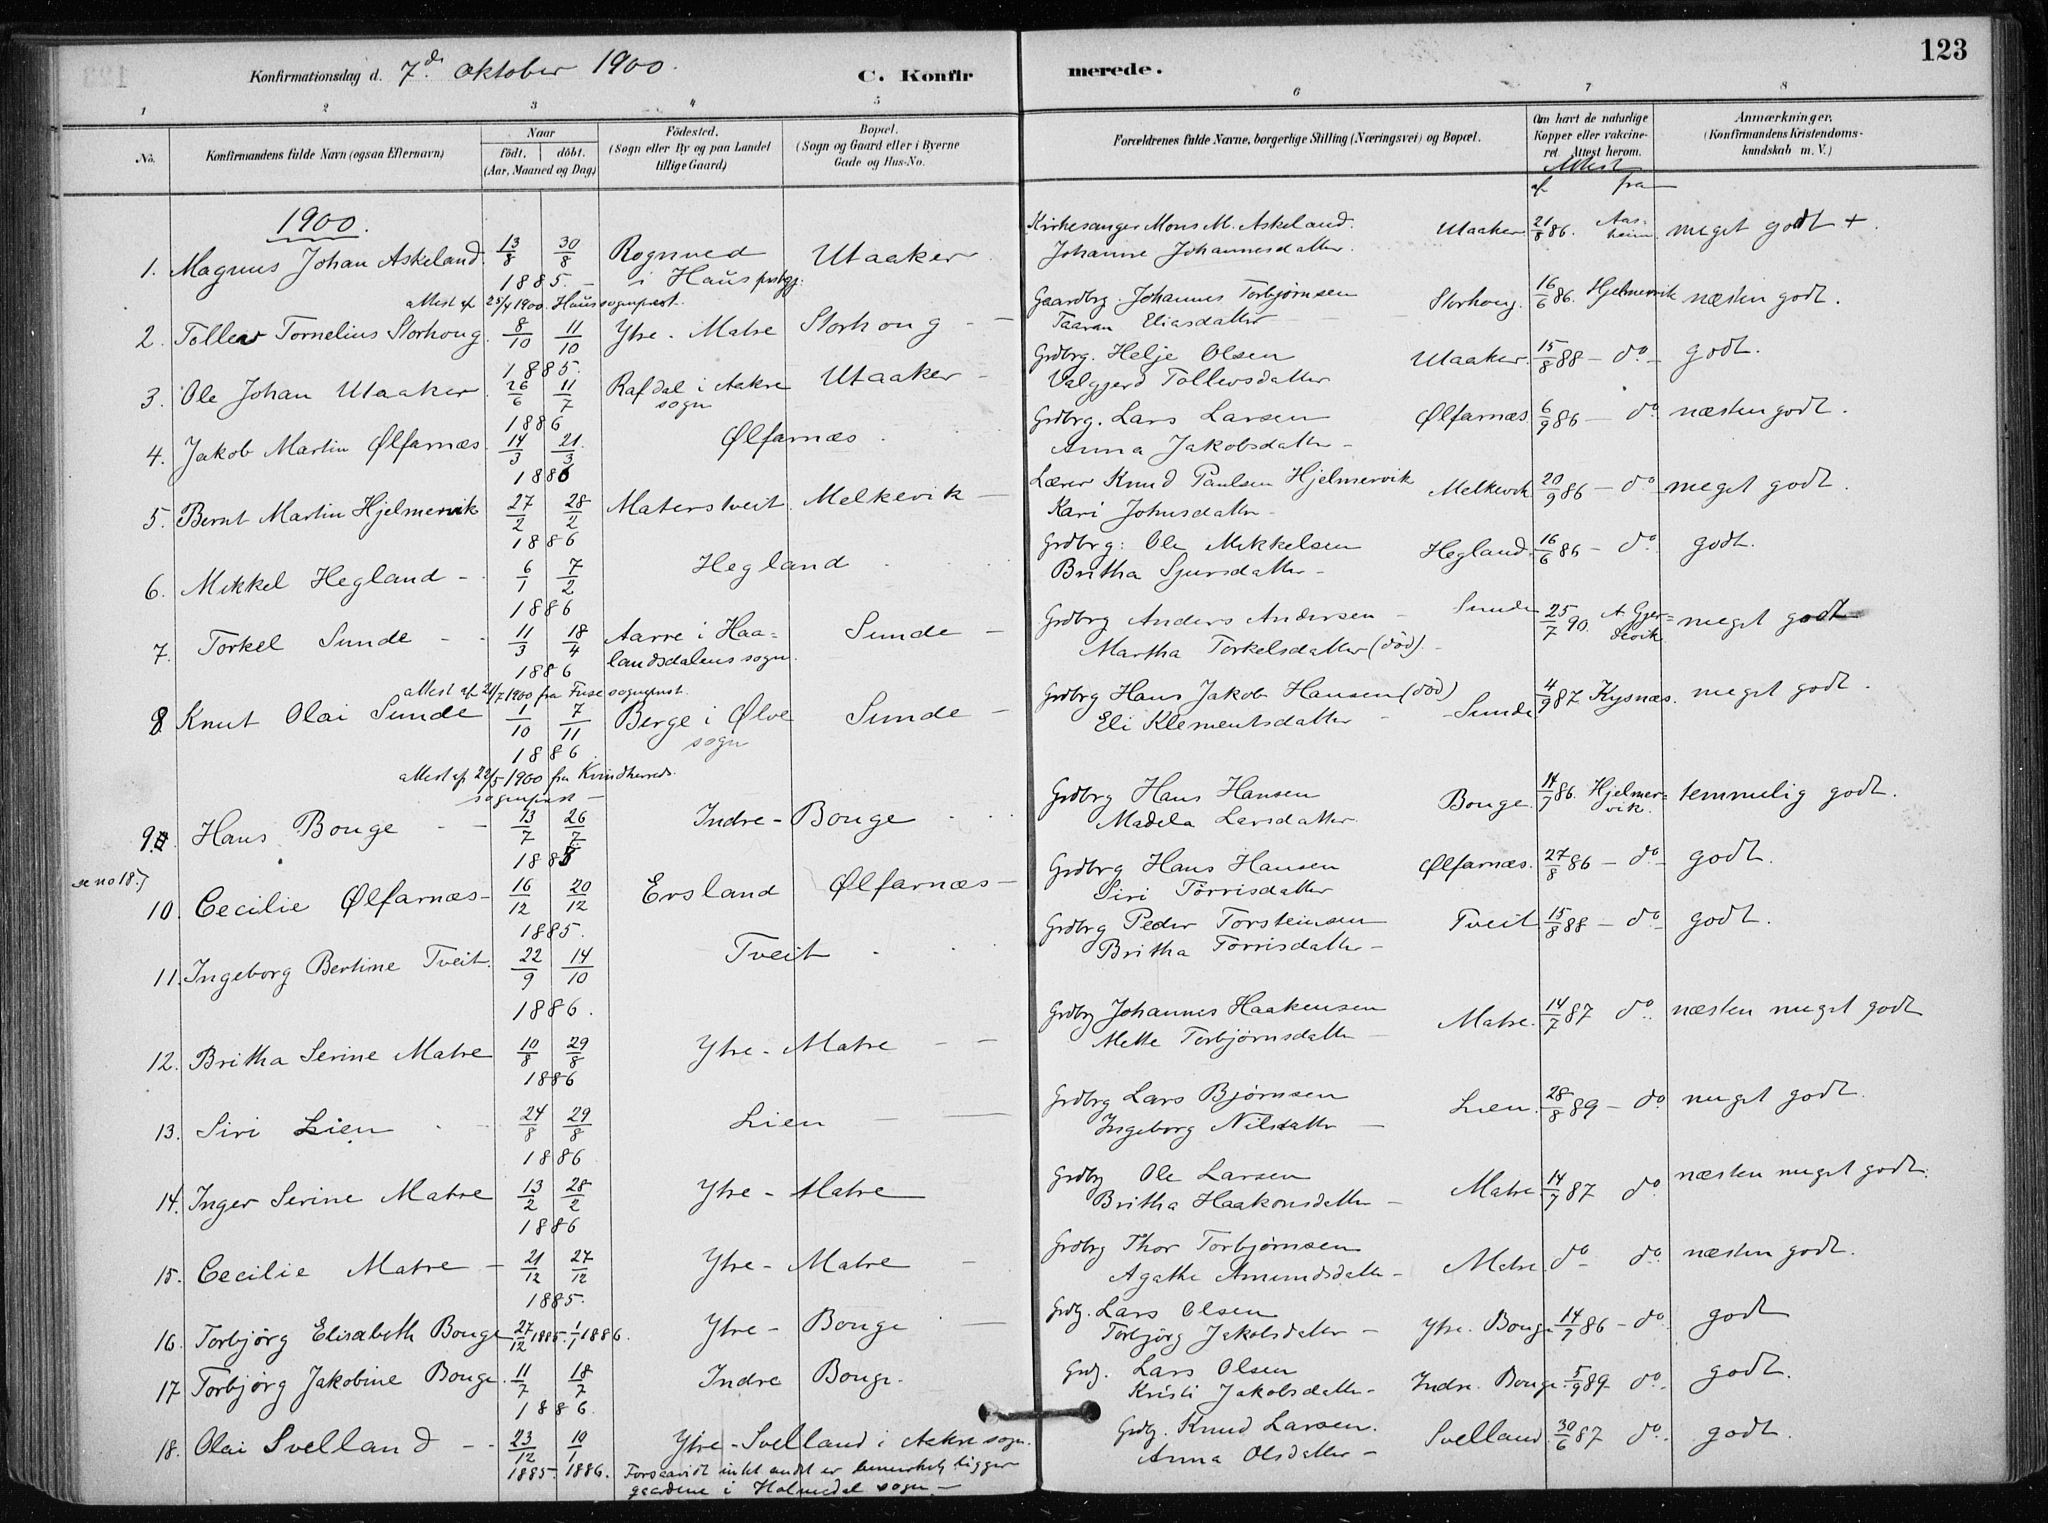 Konfirmationsdag d. 7de Oktober 1900.
C. Konfirmerede.
123
1 2 3 4 5 6 7 8
No.
Konfirmandens fulde Navn (ogsaa Efternavn)
Naar
födt. döbt.
(Aar, Maaned og Dag)
Födested.
(Sogn eller By og paa Landet
tillige Gaard)
Bopæl.
(Sogn og Gaard eller i Byerne
Gade og Hus-No.
Forældrenes fulde Navne, borgerlige Stilling (Næringsvei) og Bopæl.
Om havt de naturlige
Kopper eller vakcine-
ret. Attest herom.
Anmærkninger.
(Konfirmandens Kristendoms-
kundskab m. V.)
Attest
af fra
1900.
1. Magnus Johan Askeland. 13/8 30/8 1885. Rognved i Haus prstgj. Utaaker
Kirkesanger Mons M. Askeland. Johanne Johannesdatter. Utaaker 21/8 86. Aasheim meget godt +
attest af 25/4 1900. Haus sogneprst.
2. Tollev Tornelius Storhoug 8/10 11/10 1885. Ytre-Matre Storhoug
Gaardbrg. Johannes Torbjørnsen Taaran Eliasdatter Storhoug. 16/6 86. Hjelmervik næsten godt.
3. Ole Johan Utaaker 26/6 11/7 1886 Rafdal i Aakre sogn Utaaker
Grdbrg. Helje Olsen Valgjerd Tollevsdatter Utaaker. 15/8 88 - do - godt.
4. Jakob Martin Ølfarnæs 14/3 21/3 1886 Ølfarnæs
Grdbrg. Lars Larsen Anna Jakobsdatter Ølfarnæs 6/9 86 - do næsten godt.
5. Bernt Martin Hjelmervik 27/2 28/2 1886 Matersteit Melkevik
Lærer Knud Paulsen Hjelmervik Kari Johnsdatter Melkevik 20/9 86 - do meget godt.
6. Mikkel Hegland 6/1 7/2 1886 Hegland
Grdbrg: Ole Mikkelsen Britha Sjursdatter Hegland. 16/6 86 - do godt.
7. Torkel Sunde 11/3 18/4 1886 Aarre i Haalandsdalens sogn. Sunde
Grdbrg Anders Andersen Martha Torkelsdatter (död) Sunde 25/7 90. A Gjersevik meget godt
attest af 21/7 1900 fra Fuse sogneprst.
8 Knut Olai Sunde 1/10 7/11 1886. Berge i Ølve sogn Sunde
Grdbrg Hans Jakob Hansen (död) Eli Klementsdatter Sunde 4/9 87 Kysnæs. meget godt.
attest af 22/5 1900 fra Kvindherreds
sogneprst
9. Hans Bouge 13/7 26/7 1885 Indre-Bouge
Grdbrg Hans Hansen Madela Larsdatter Bouge. 14/9 86. Hjelmervik. temmelig godt.
se no 18.
10. Cecilie Ølfarnæs 16/12 20/12 1885. Ersland Ølfarnæs
Grdbrg Hans Hansen Siri Törrisdatter Ølfarnæs. 27/8 86 - do godt.
11. Ingeborg Bertine Tveit. 22/9 14/10 1886. Tveit
Grdbrg Peder Torsteinsen Britha Törrisdatter Tveit 15/8 88 - do godt.
12. Britha Serine Matre 10/8 29/8 1886 Ytre-Matre
Grdbrg Johannes Haakensen Mette Torbjørnsdatter Matre. 14/7 87 do næsten meget godt
13. Siri Lien 24/8 29/8 1886 Lien
Grdbrg Lars Bjørnsen Ingeborg Nilsdatter Lien. 28/8 89 - do meget godt.
14. Inger Serine Matre 13/2 28/2 1886 Ytre-Matre
Grdbrg Ole Larsen Britha Haakonsdatter Matre. 14/7 87 do næsten meget godt.
15. Cecilie Matre 21/12 27/12 1885. Ytre-Matre
Grdbrg Thor Torbjørnsen Agathe Amundsdatter Matre. do do næsten godt.
16. Torbjørg Elisabeth Bouge 27/12 1885. 1/1 1886. Ytre-Bouge
Grdbg. Lars Olsen Torbjörg Jakobsdatter Ytre. Bouge 14/9 86 - do godt
17 Torbjørg Jakobine Bouge. 11/7 18/7 1886. Indre Bouge.
Grdbg. Lars Olsen Kristi Jakobsdatter Indre. Bouge. 5/9 89 do godt.
18. Olai Svelland 23/12 1885. 10/1 1886. Ytre-Svelland i Aakre sogn.
Grdbg. Knud Larsen. Anna Olsdatter Svelland. 30/6 87 do godt.
Forsaavidt intet andet er bemerket, ligger
gaardene i Holmedal sogn.